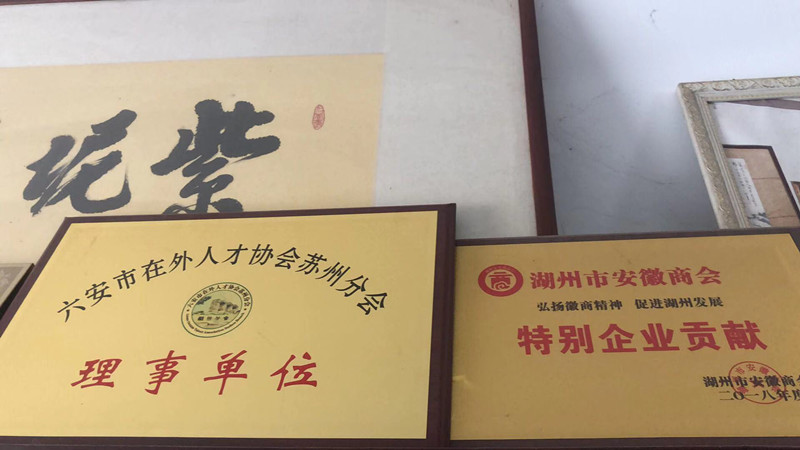 紫
六安市在外人才协会苏州分会
理事单位
湖州市安徽商会
弘扬徽商精神 促进湖州发展
特别企业贡献
湖州市安徽商会
二〇一八年度